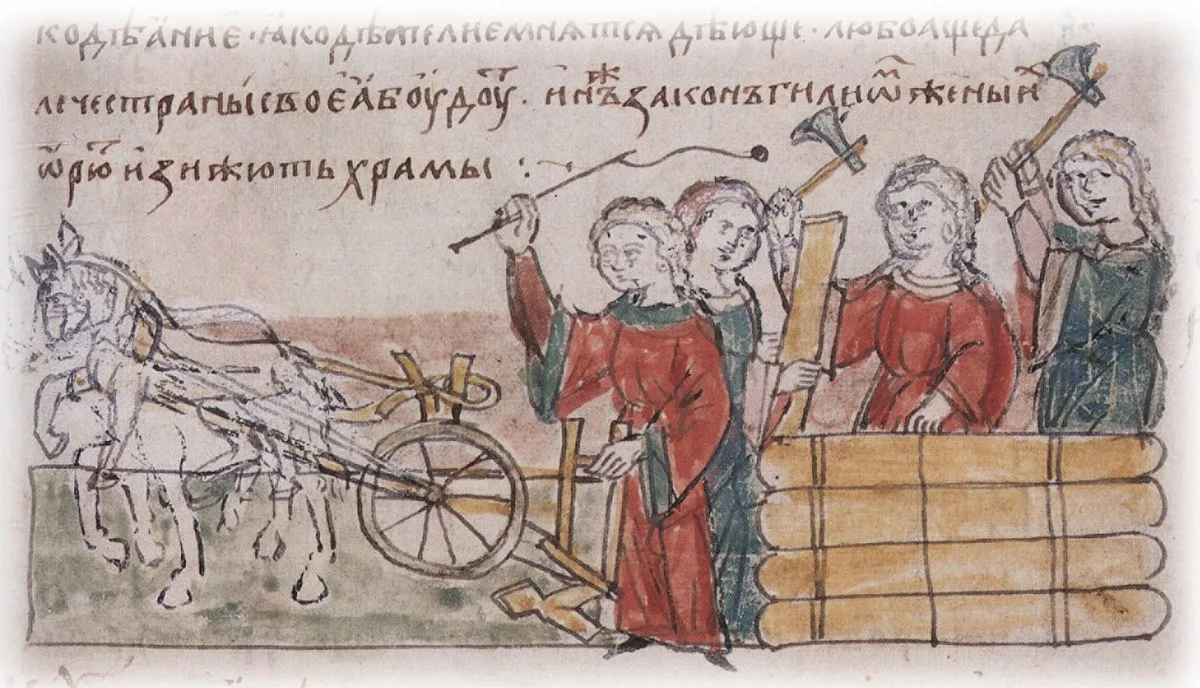 кодѣание · ꙗкодѣтелиемнѧтсѧ дѣюще · любоащеда
лече страны своеа боудоу · инъⷤ законъ гилиѿ жены иⷯ
ѡрюⷮ и зижють храмы :